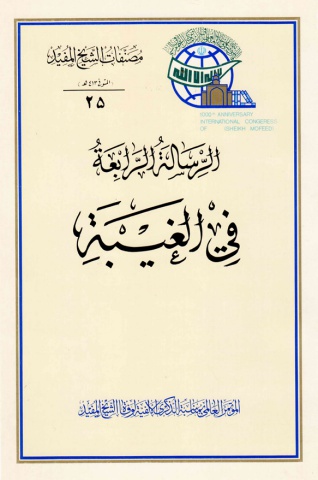 مصنفات الشيخ المفيد
(المتوفى ٤١٣ هـ)
٢٥
1000TH ANNIVERSARY
INTERNATIONAL CONGERESS
OF SHEIKH MOFEED
الرسالة الرابعة
في الغيبة
المؤتمر العالمي بمناسبة الذكرى الألفية لوفاة الشيخ المفيد